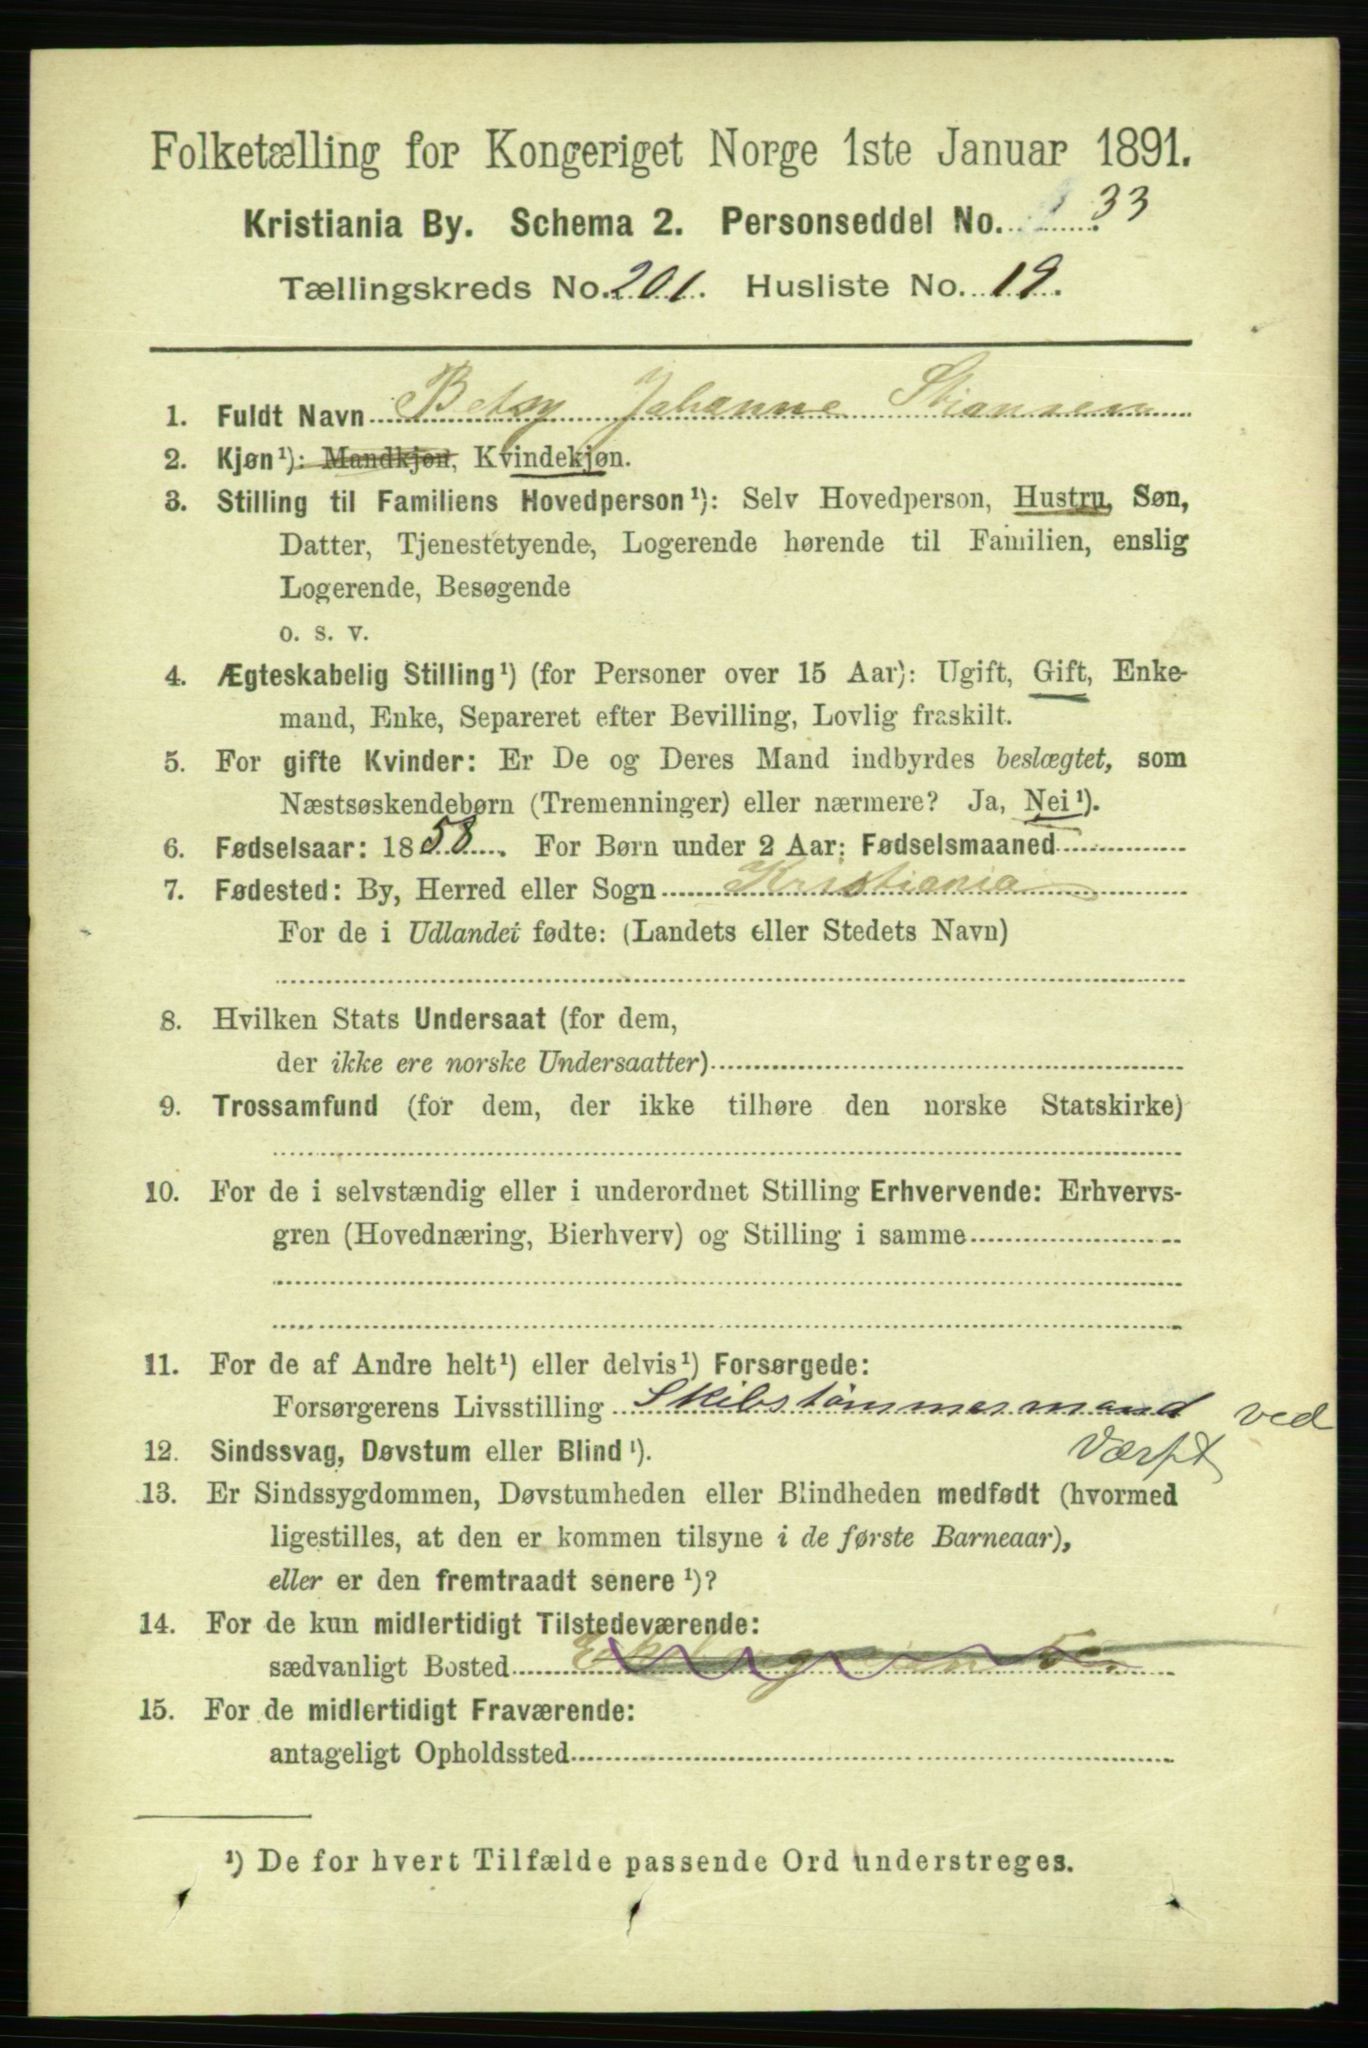 Folketælling for Kongeriget Norge 1ste Januar 1891.
Kristiania By. Schema 2. Personseddel No. 33
Tællingskreds No. 201. Husliste No. 19.
1. Fuldt Navn Betsy Johanne Stiansen
2. Kjøn¹): Mandkjøn, Kvindekjøn.
3. Stilling til Familiens Hovedperson¹): Selv Hovedperson, Hustru, Søn,
Datter, Tjenestetyende, Logerende hørende til Familien, enslig
Logerende, Besøgende
o. s. v.
4. Ægteskabelig Stilling¹) (for Personer over 15 Aar): Ugift, Gift, Enke-
mand, Enke, Separeret efter Bevilling, Lovlig fraskilt.
5. For gifte Kvinder: Er De og Deres Mand indbyrdes beslægtet, som
Næstsøskendebørn (Tremenninger) eller nærmere? Ja, Nei¹).
6. Fødselsaar: 1858. For Børn under 2 Aar: Fødselsmaaned
7. Fødested: By, Herred eller Sogn Kristiania
For de i Udlandet fødte: (Landets eller Stedets Navn)
8. Hvilken Stats Undersaat (for dem,
der ikke ere norske Undersaatter)
9. Trossamfund (for dem, der ikke tilhøre den norske Statskirke)
10. For de i selvstændig eller i underordnet Stilling Erhvervende: Erhvervs-
gren (Hovednæring, Bierhverv) og Stilling i samme
11. For de af Andre helt¹) eller delvis¹) Forsørgede:
Forsørgerens Livsstilling Skibstømmermand ved
Værft
12. Sindssvag, Døvstum eller Blind¹).
13. Er Sindssygdommen, Døvstumheden eller Blindheden medfødt (hvormed
ligestilles, at den er kommen tilsyne i de første Barneaar),
eller er den fremtraadt senere¹)?
14. For de kun midlertidigt Tilstedeværende:
sædvanligt Bosted
15. For de midlertidigt Fraværende:
antageligt Opholdssted
¹) De for hvert Tilfælde passende Ord understreges.